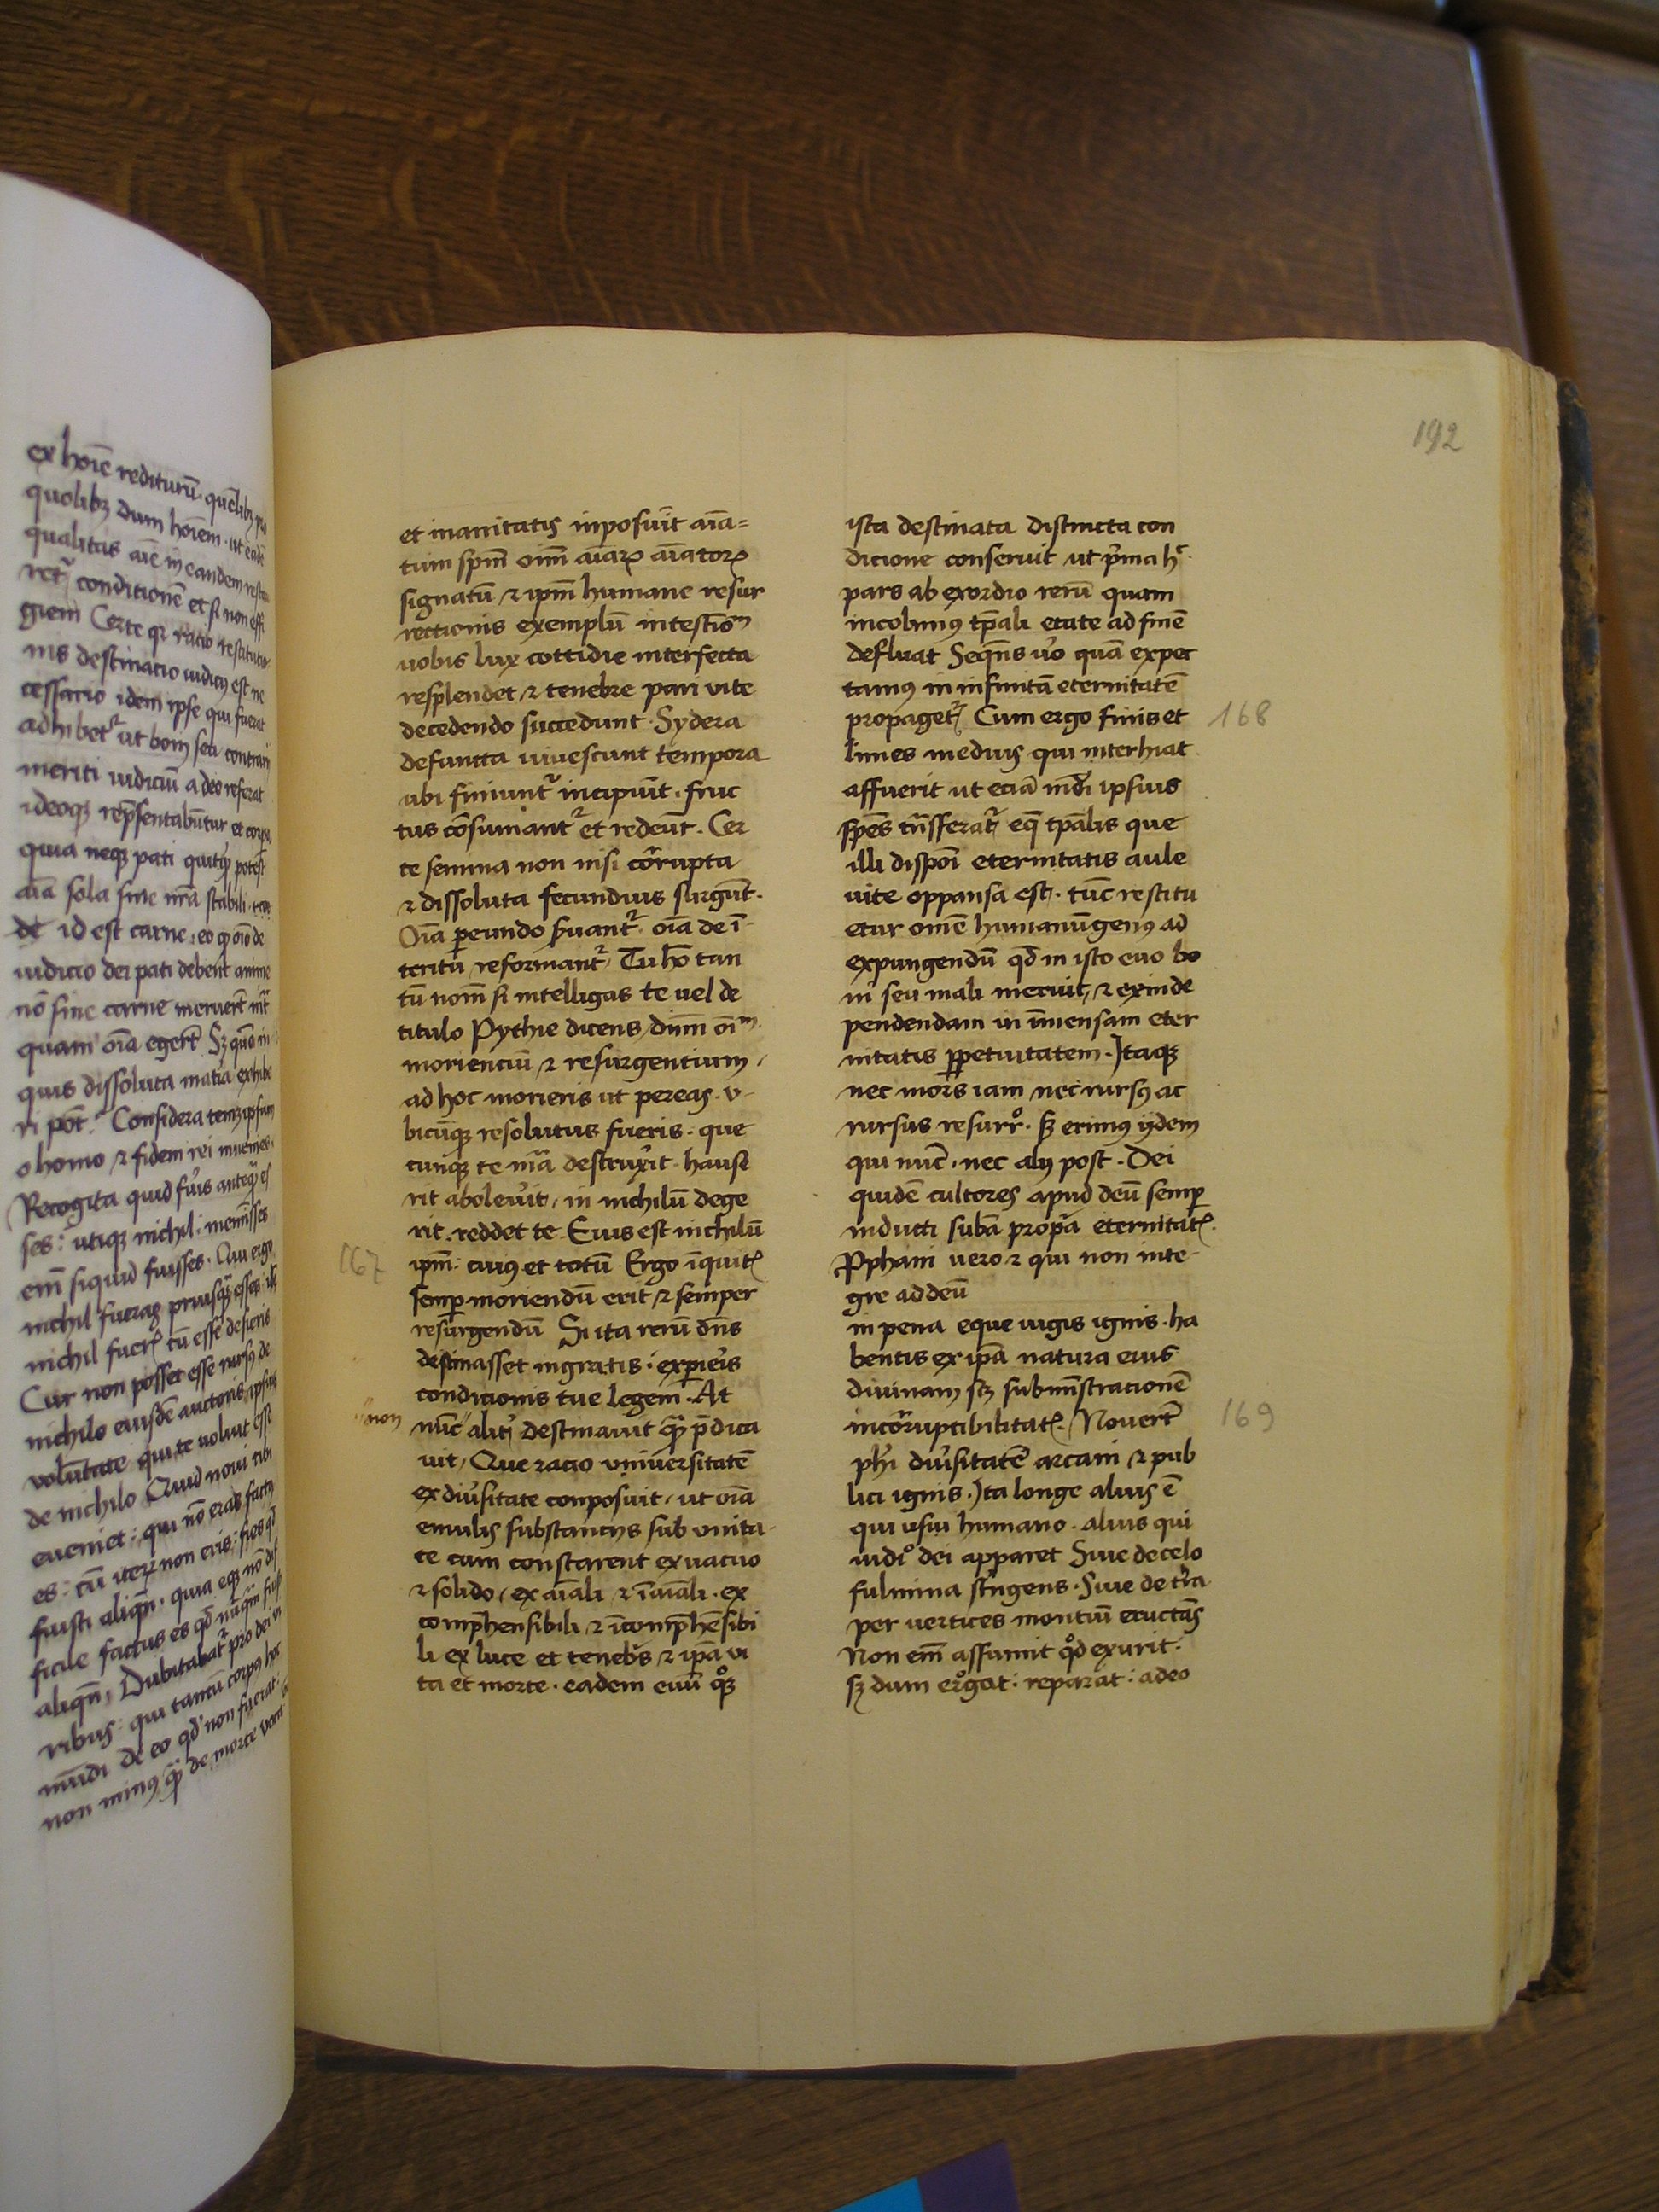 ex hoīe rediturū. quēlibꝫ
quolibꝫ dum hoīem. ut eadē
qualitas aīe in eandem
ret᷑ conditionē et si non effi
giem Certe qꝛ racio restitutio
nis destinacio iudicij est ne
cessario idem ipse qui fuerat
adhibet᷑ ut boni seu contrarij
meriti iudiciū a deo referat
ideoqꝫ rep̄sentabūtur et
quia neqꝫ pati potest
aīa sola sine mīa stabili
id est carne. eo ꝙ oīo de
iudicio dei pati debent anime
nō sine carne meruerūt
quam oīa egerūt Sꝫ quō in
quis dissoluta matīa exhibe
ri pōt. Considera temꝫ ipsum
o homo ⁊ fidem rei inuenies.
Recogita quid fuīs anteqꝫ es
ses: utiqꝫ nichil: meminisses
em̄ siquid fuisses. Qui ergo
nichil fueras priusqꝫ esses
nichil fuerꝭ cū esse desieris
Cur non posses esse rursꝰ de
nichilo eiusdē auctoris ipsius
volūtate qui te voluit esse
de nichilo Quid noui tibi
eueniet: qui nō eras factꝰ
es: cū iteꝝ non eris: fies qd̄
fuisti aliqn̄. quia eqꝫ nō dif
ficile factus es qd̄ nūqꝫ fuisti
aliqn̄. Dubitabat᷑ pro dei vi
ribus: qui tantū corpꝰ hoc
mūdi de eo qd̄ non fuerat
non minꝰ qꝫ de morte
192
et inanitatis inposuīt aīa=
tum spm̄ om̄ aīaꝝ aīatorꝫ
signatū ⁊ ipm̄ humane resur
rectionis exemplū intestīoᵐ
uobis lux cottidie interfecta
resplendet ⁊ tenebre pari vite
decedendo succedunt. Sydera
defuncta uiuescunt tempora
ubi finiunt᷑ incipiūt. fruc
tus cōsumant᷑ et redeūt. Cer
te semina non nisi cor̄rupta
⁊ dissoluta fecundius surgūt.
Oīa pereundo ẜuant᷑. oīa de ī
teritu reformant᷑. Tu hō tan
tū nom̄ si intelligas te uel de
titulo Pythie dicens dn̄m oīᵐ
morienciū ⁊ resurgentium
ad hoc morieris ut pereas. v
bicūqꝫ resolutus fueris. que
cunqꝫ te mīa destruxīt. hause
rit aboleuīt. in nichilū dege
rit. reddet te Eius est nichilū
167
ipm̄: cuiꝰ et totū Ergo īquitꝭ
semꝑ moriendū erit ⁊ semper
resurgendū Si ita rerū dn̄s
destinasset ingratis: expieīs
condicionis tue legem. At
non
nūc alit᷑ destinauit qꝫ p̄dica
uit. Que racio vniuersitatē
ex diūsitate conposuit. ut oīa
emulis substancijs sub vnita
te cum constarent ex uacuo
⁊ solido. ex aīali ⁊ īaīali. ex
comp̄hensibili ⁊ īcomp̄hēsibi
li ex luce et tenebīs ⁊ ip̄a vi
ta et morte. eadem euū qͦqꝫ
ista destinata distincta con
dicione conseruit ut p̄ma hᷓ
pars ab exordio rerū quam
incolimꝰ tp̄ali etate ad finē
defluat Seqn̄s ūo quā expec
tamꝰ in infinitā eternitatē
propaget᷑ Cum ergo finis et
168
limes mediꝰ qui interhiat
affuerit ut eciā mūdi ipsius
spēs tn̄sferat᷑ eqꝫ tp̄alis que
illi dispoī eternitatis aule
uite oppansa est. tūc restitu
etur om̄e humanū genꝰ ad
expungendū qd̄ in isto euo bo
ni seu mali meruit. ⁊ exinde
pendendam in īmensam eter
nitatis ꝑpetuitatem. Itaqꝫ
nec mors iam nec rursꝰ ac
rursus resurrͦ. sꝫ erimꝰ ijdem
qui nūc. nec alij post. Dei
quidē cultores apud deū semꝑ
induti subā propͥa eternitatꝭ.
Pphani uero ⁊ qui non inte
gre ad deū
in pena eque iugis ignis. ha
bentis ex ip̄a natura eius
diuinam scꝫ submīstracionē
incor̄ruptibilitatꝭ. Nouerūt
169
phī diūsitatē arcani ⁊ pub
lici ignis. Ita longe alius ē
qui usui humano. alius qui
iudiͦ dei apparet Siue de celo
fulmina stͥngens. Siue de tr̄a
per uertices montiū eructās
Non em̄ assumit qͦd exurit:
sꝫ dum erͦgat: reparat: adeo